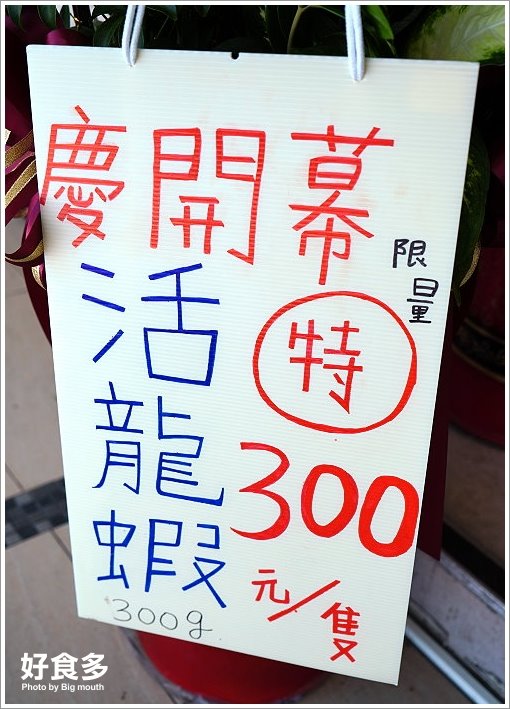 慶開幕
活龍蝦
300g
限量
特
300
元/隻
好食多
Photo by Big mouth